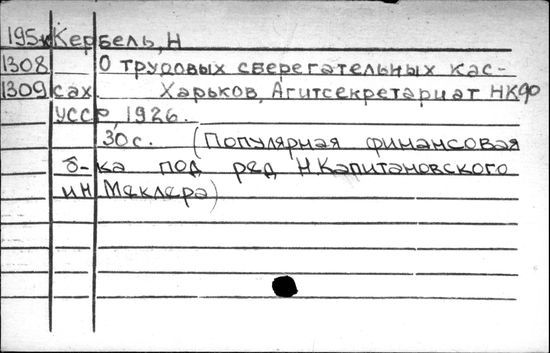 195к Кербель, Н
1308 О трудовых сберегательных кас-
1309 сах. Харьков, Агитсекретариат НКФ
УССР, 1926.
30 с. (Популярная финансовая
б-ка под ред Н. Капитановского
и Н Меклера)